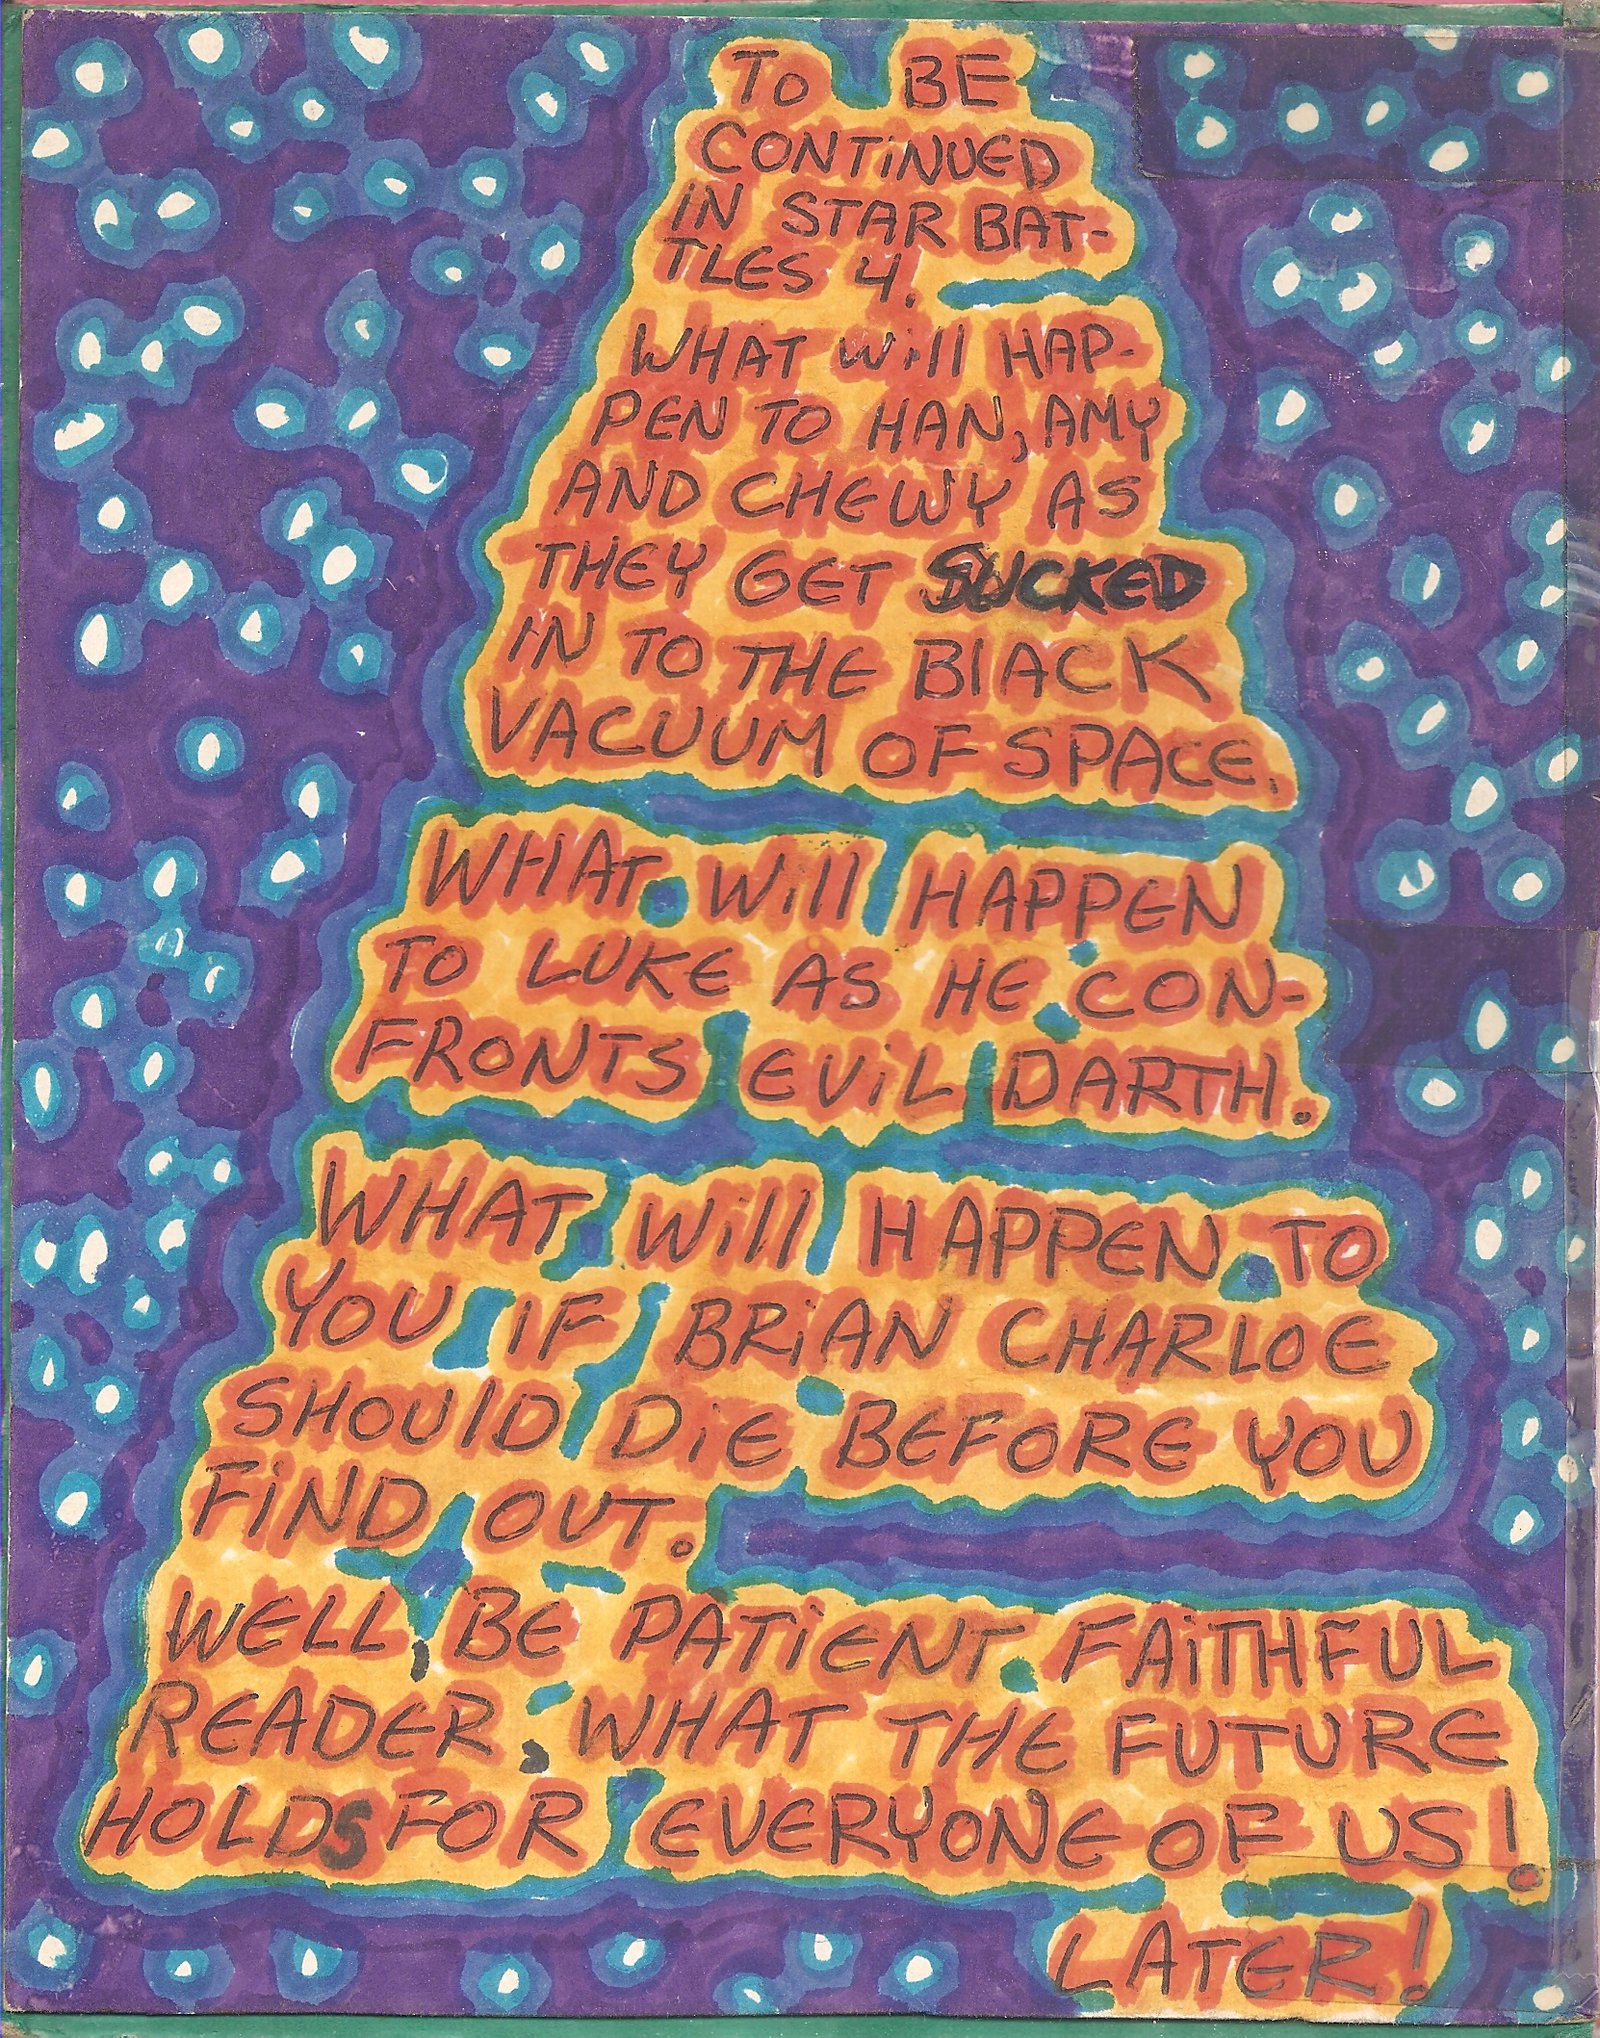 TO BE
CONTINUED
IN STAR BAT-
TLES 4.
WHAT Will HAP-
PEN TO HAN, AMY
AND CHEWY AS
THEY GET SUCKED
IN TO THE BlACK
VACUUM OF SPACE.
WHAT Will HAPPEN
TO LUKE AS HE CON-
FRONTS EViL DARTH.
WHAT Will HAPPEN TO
YOU IF BRiAN CHARLOE
SHOUlD DiE BEFORE YOU
FiND OUT.
WELL, BE PATiENT FAiTHFUL
READER, WHAT THE FUTURE
HOLDS FOR EVERYONE OF US!
LATER!